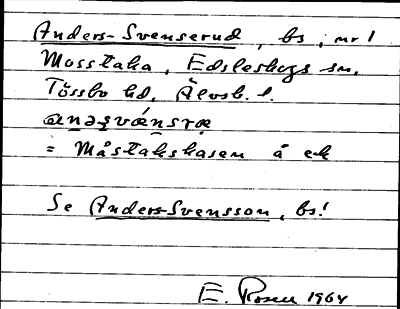 Anders-Svenserud, bs, nr 1
Mosstaka, Edsleskogs sn,
Tössbo hd, Älvsb. l.
anəʂvænsrə
= Måstakshasen å ek
Se Anders-Svensson, bs!
E. Rosen 1964